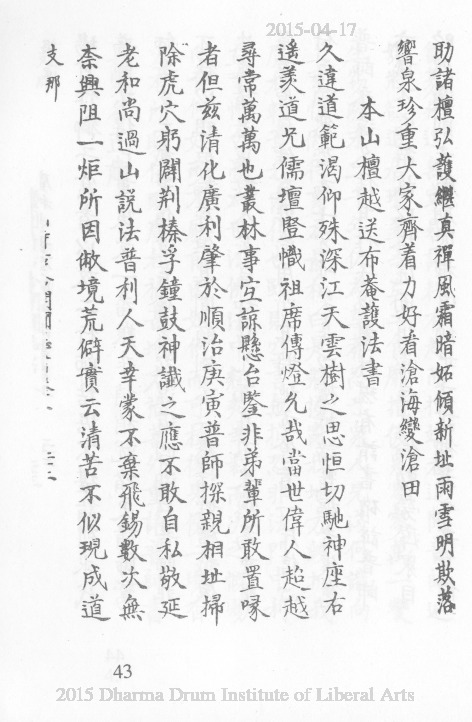 2015-04-17
助諸檀弘護繼真禪風霜暗妬傾新址雨雪明欺落
響泉珍重大家齊着力好看滄海變滄田
本山檀越送布菴護法書
久違道範渴仰殊深江天雲樹之思恒切馳神座右
遥羨道兄儒壇豎幟祖席傳燈允哉當世偉人超越
尋常萬萬也叢林事宐諒懸台鑒非弟輩所敢置喙
者但兹清化廣利肇於順治庚寅普師探親相址掃
除虎穴躬闢荆榛孚鐘鼓神讖之應不敢自私敬延
老和尚過山説法普利人天幸蒙不棄飛錫數次無
柰興阻一炬所因俶境荒僻實云清苦不似現成道
支那
43
2015 Dharma Drum Institute of Liberal Arts